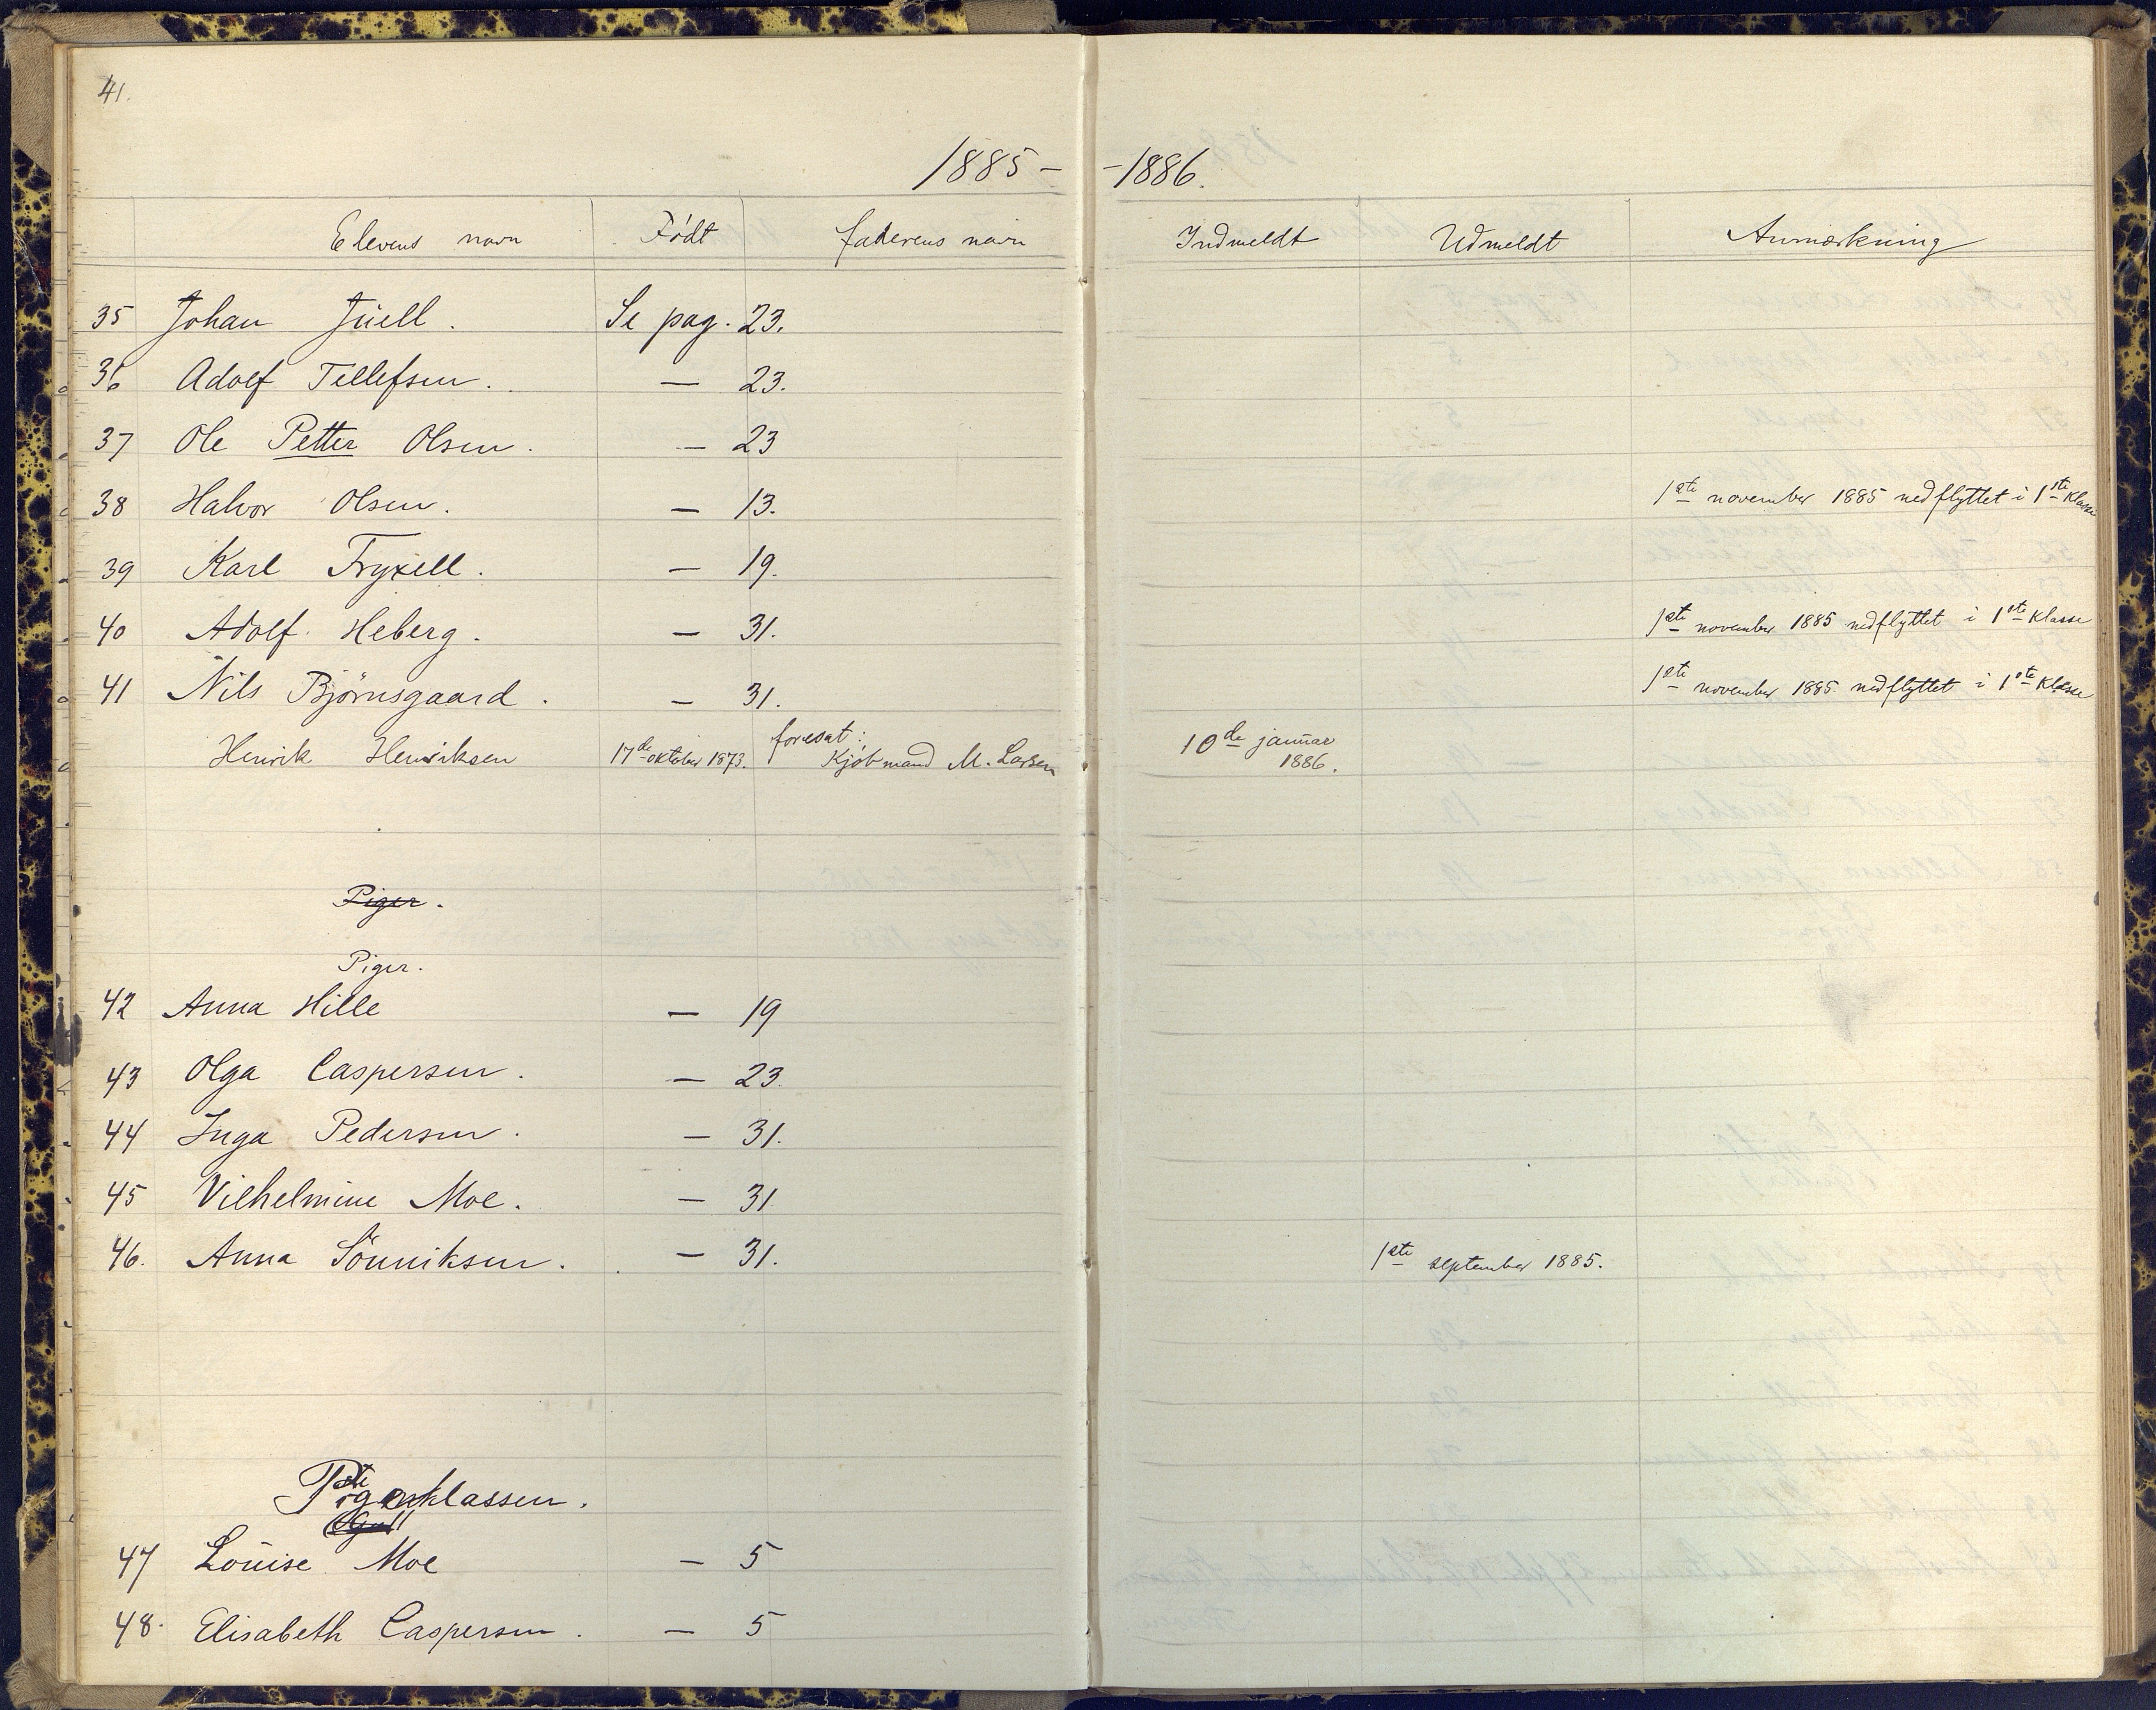 41.
1885 – – 1886.
Elevens navn Født faderens navn Indmeldt Udmeldt Anmærkning
35 Johan Jüell. Se pag. 23.
36 Adolf Tellefsen. — 23.
37 Ole Petter Olsen. — 23
38 Halvor Olsen. — 13. 1ste november 1885 nedflyttet i 1ste klasse
39 Karl Fryxell. — 19.
40 Adolf Heberg. — 31. 1ste november 1885 nedflyttet i 1ste klasse
41 Nils Bjørnsgaard. — 31. 1ste november 1885 nedflyttet i 1ste klasse
Henrik Henriksen 17de oktober 1873. foresat: Kjøbmand M. Larsen 10de januar 1886.
Piger.
Piger.
42 Anna Hille — 19
43 Olga Caspersen. — 23.
44 Inga Pedersen. — 31.
45 Vilhelmine Moe. — 31
46. Anna Sönniksen. — 31. 1ste september 1885.
klassen.
47 Louise Moe — 5
48. Elisabeth Caspersen. — 5